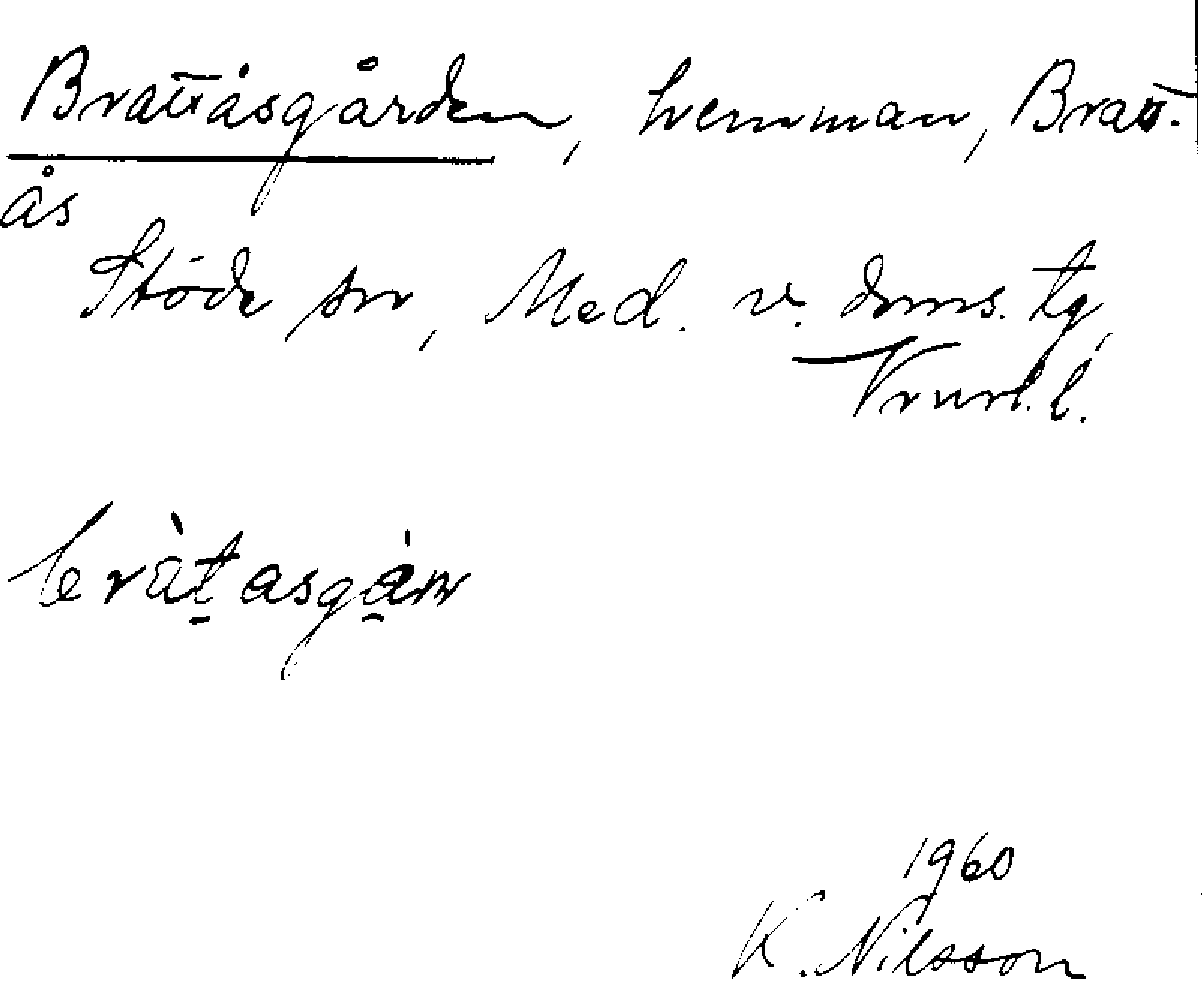 Brattåsgården, hemman, Bratt-
ås
Stöde sn, Med. v. doms. tg,
Vrnrl. l.
bràtasgàṇ
1960
K. Nilsson